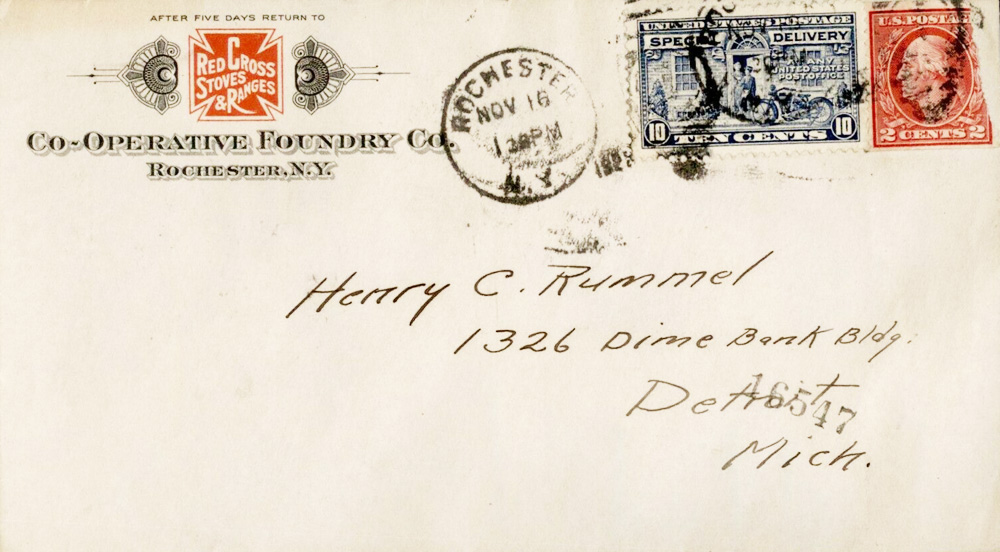 AFTER FIVE DAYS RETURN TO
RED CROSS
STOVES
& RANGES
CO-OPERATIVE FOUNDRY CO.
ROCHESTER, N.Y.
ROCHESTER
NOV 16
N.Y.
UNITED STATES POSTAGE
SPECIAL DELIVERY
AT ANY
UNITED STATES
POST OFFICE
10 TEN CENTS 10
U.S. POSTAGE
2 CENTS 2
Henry C. Rummel
1326 Dime Bank Bldg.
Detroit
16547
Mich.